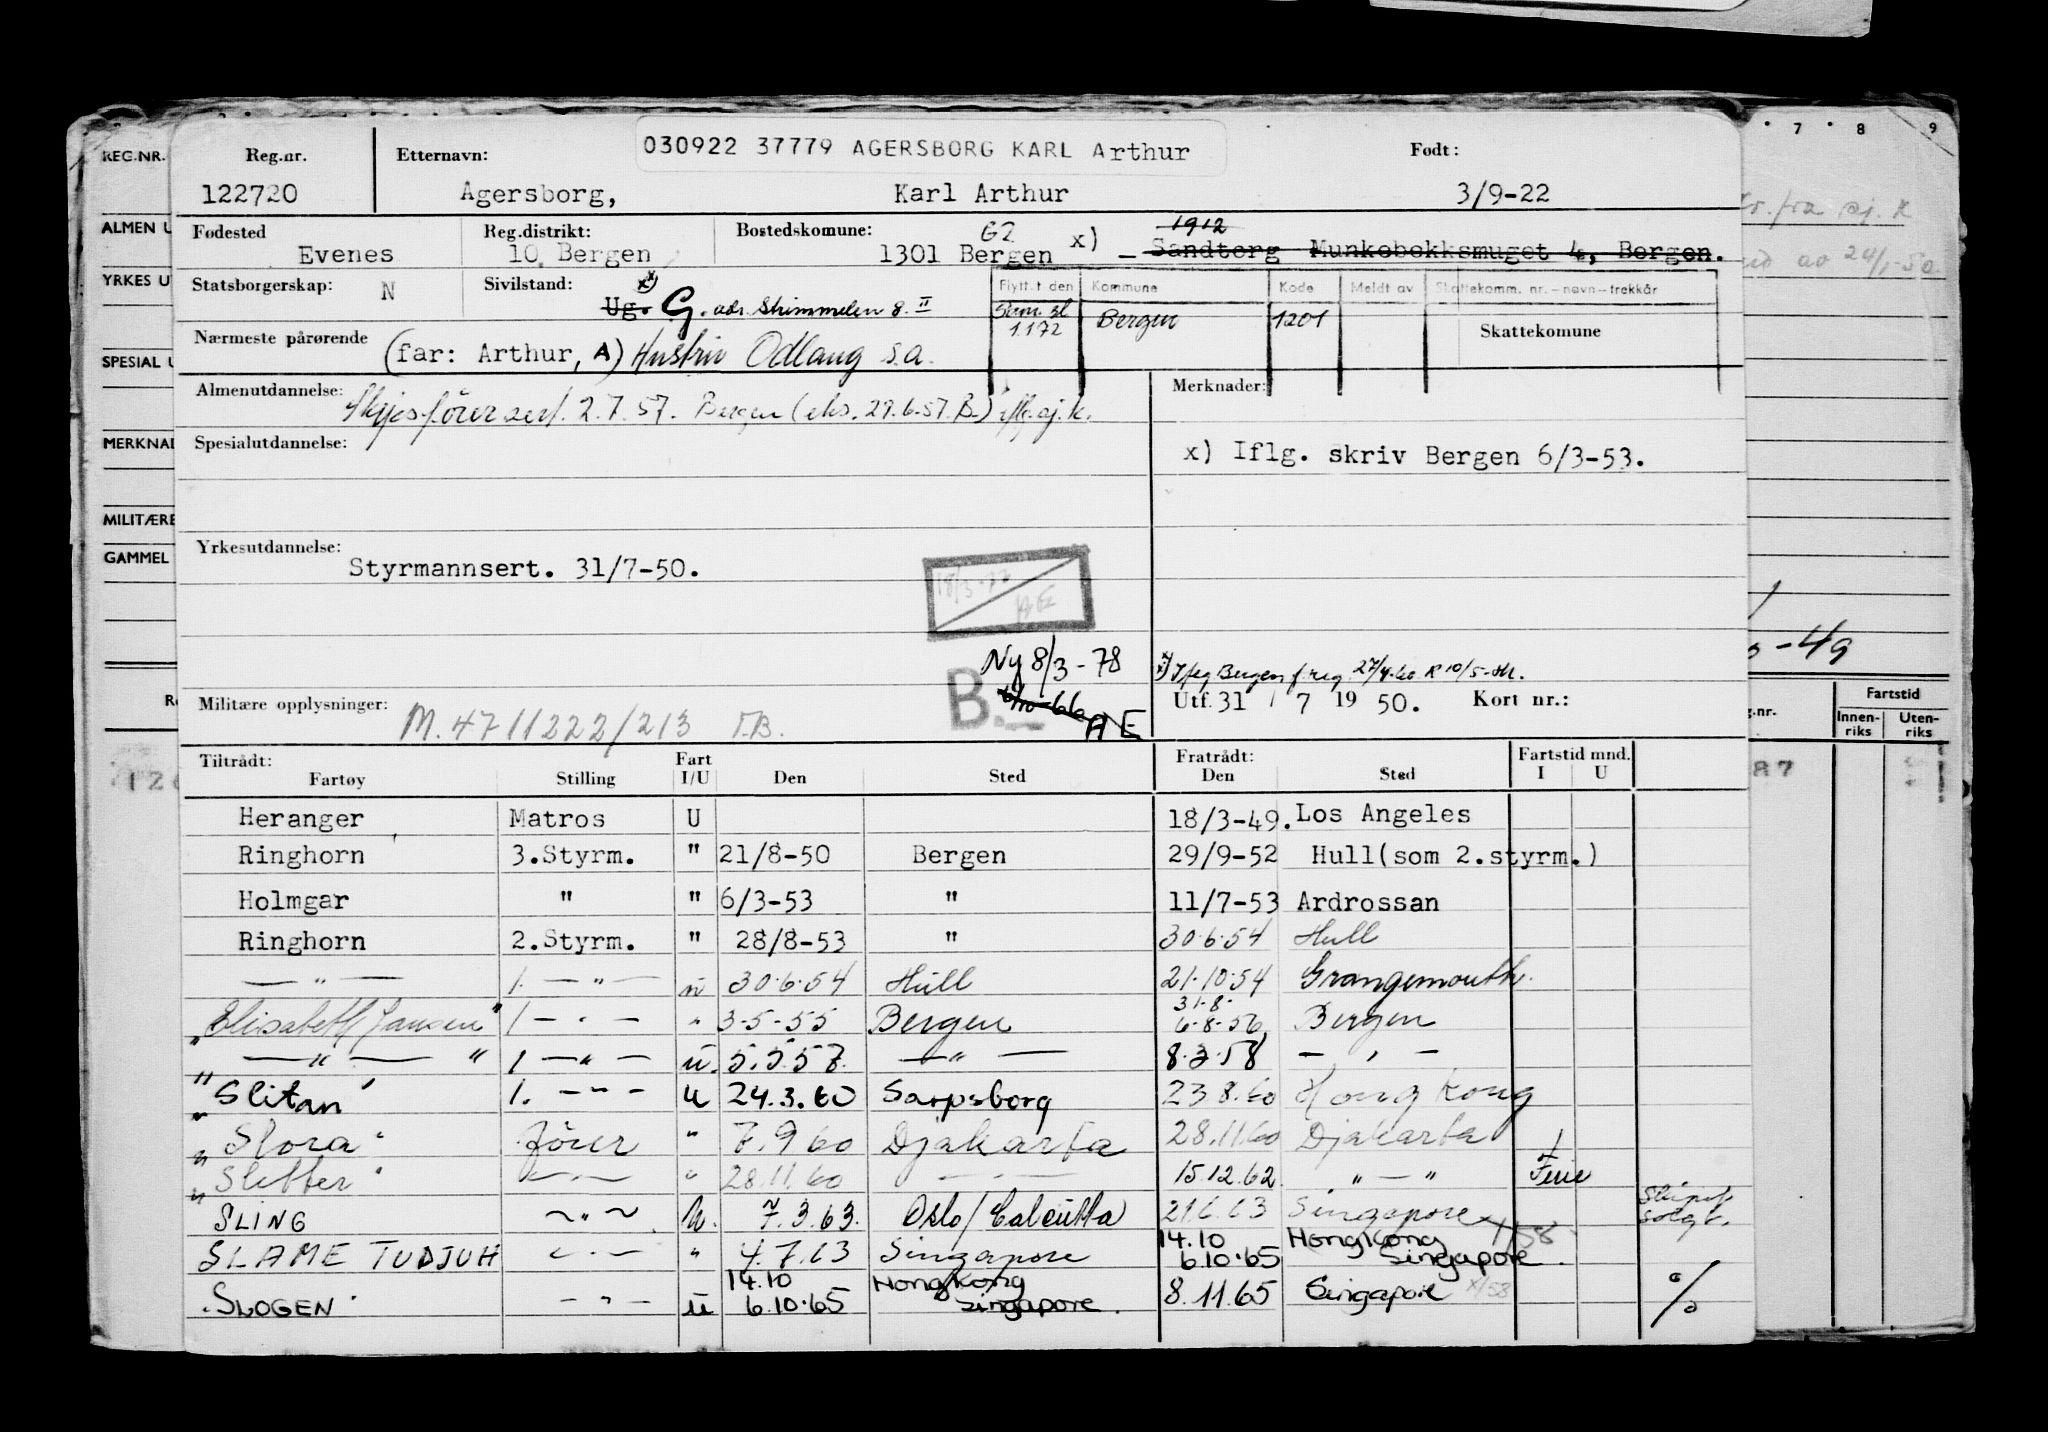 7 8 9
030922 37779 AGERSBORG KARL Arthur
REG.NR. Reg.nr. Etternavn: Født:
122720 Agersborg, Karl Arthur 3/9-22
ALMEN U Fødested Reg.distrikt: Bostedskomune: G2 x) 1912
Evenes 10. Bergen 1301 Bergen — Sandtorg Munkebekksmuget 4, Bergen.
YRKES U Statsborgerskap: N Sivilstand: x) Flytt.t den Kommune Kode Meldt av Skattekomm. nr.—navn—trekkår
Ug. G. adr. Skimmelen 8. II 1.1 72 Bergen 1201 Skattekomune
Nærmeste pårørende (far: Arthur, A) Hustru Odlaug s.a.
SPESIAL U
Almenutdannelse: Skipsförersert. 2.7.57. Bergen (eks. 29.6.57. B.) iflg. sj.k. Merknader:
MERKNAD Spesialutdannelse: x) Iflg. skriv Bergen 6/3-53.
MILITÆRE
GAMMEL Yrkesutdannelse:
Styrmannsert. 31/7-50.
Ny 8/3-78
B. AE Utf. 31 / 7 19 50. Kort nr.:
-49
Militære opplysninger: M. 4711222/213 T.B.
Fartstid
Innen-riks Uten-riks
Tiltrådt: Fart Fratrådt: Fartstid mnd.
Fartøy Stilling I/U Den Sted Den Sted I U
Heranger Matros U 18/3-49. Los Angeles
Ringhorn 3.Styrm. " 21/8-50 Bergen 29/9-52 Hull(som 2.styrm.)
Holmgar " " 6/3-53 " 11/7-53 Ardrossan
Ringhorn 2.Styrm. " 28/8-53 " 30.6.54 Hull
— " — 1. — " — u 30.6.54 Hull 21.10.54 Grangemouth.
31.8.
"Elisabeth Jansen" 1 — " — " 3-5-55 Bergen 6.8.56 Bergen
" — " — " 1 — " — u. 5.5.57. — " — 8.3.58 — " —
"Slitan" 1. — " — u 24.3.60 Sarpsborg 23 8.60 Hong Kong
"Slora" förer " 7.9 60 Djakarta 28.11.60 Djakarta
"Sletter" — " — " 28.11.60 — " — 15.12.62 " — " Ferie
"SLING ~ " ~ u. 7.3.63. Oslo/Calcutta 21.6.63 Singapore x/58
SLAME TUDJUH — " — " 4.7.63 Singapore 14.10 6.10.65 Hongkong Singapore.
"SLOGEN" — " — u 14.10 6.10.65 Hongkong Singapore. 8.11.65 Singapore x/58 %